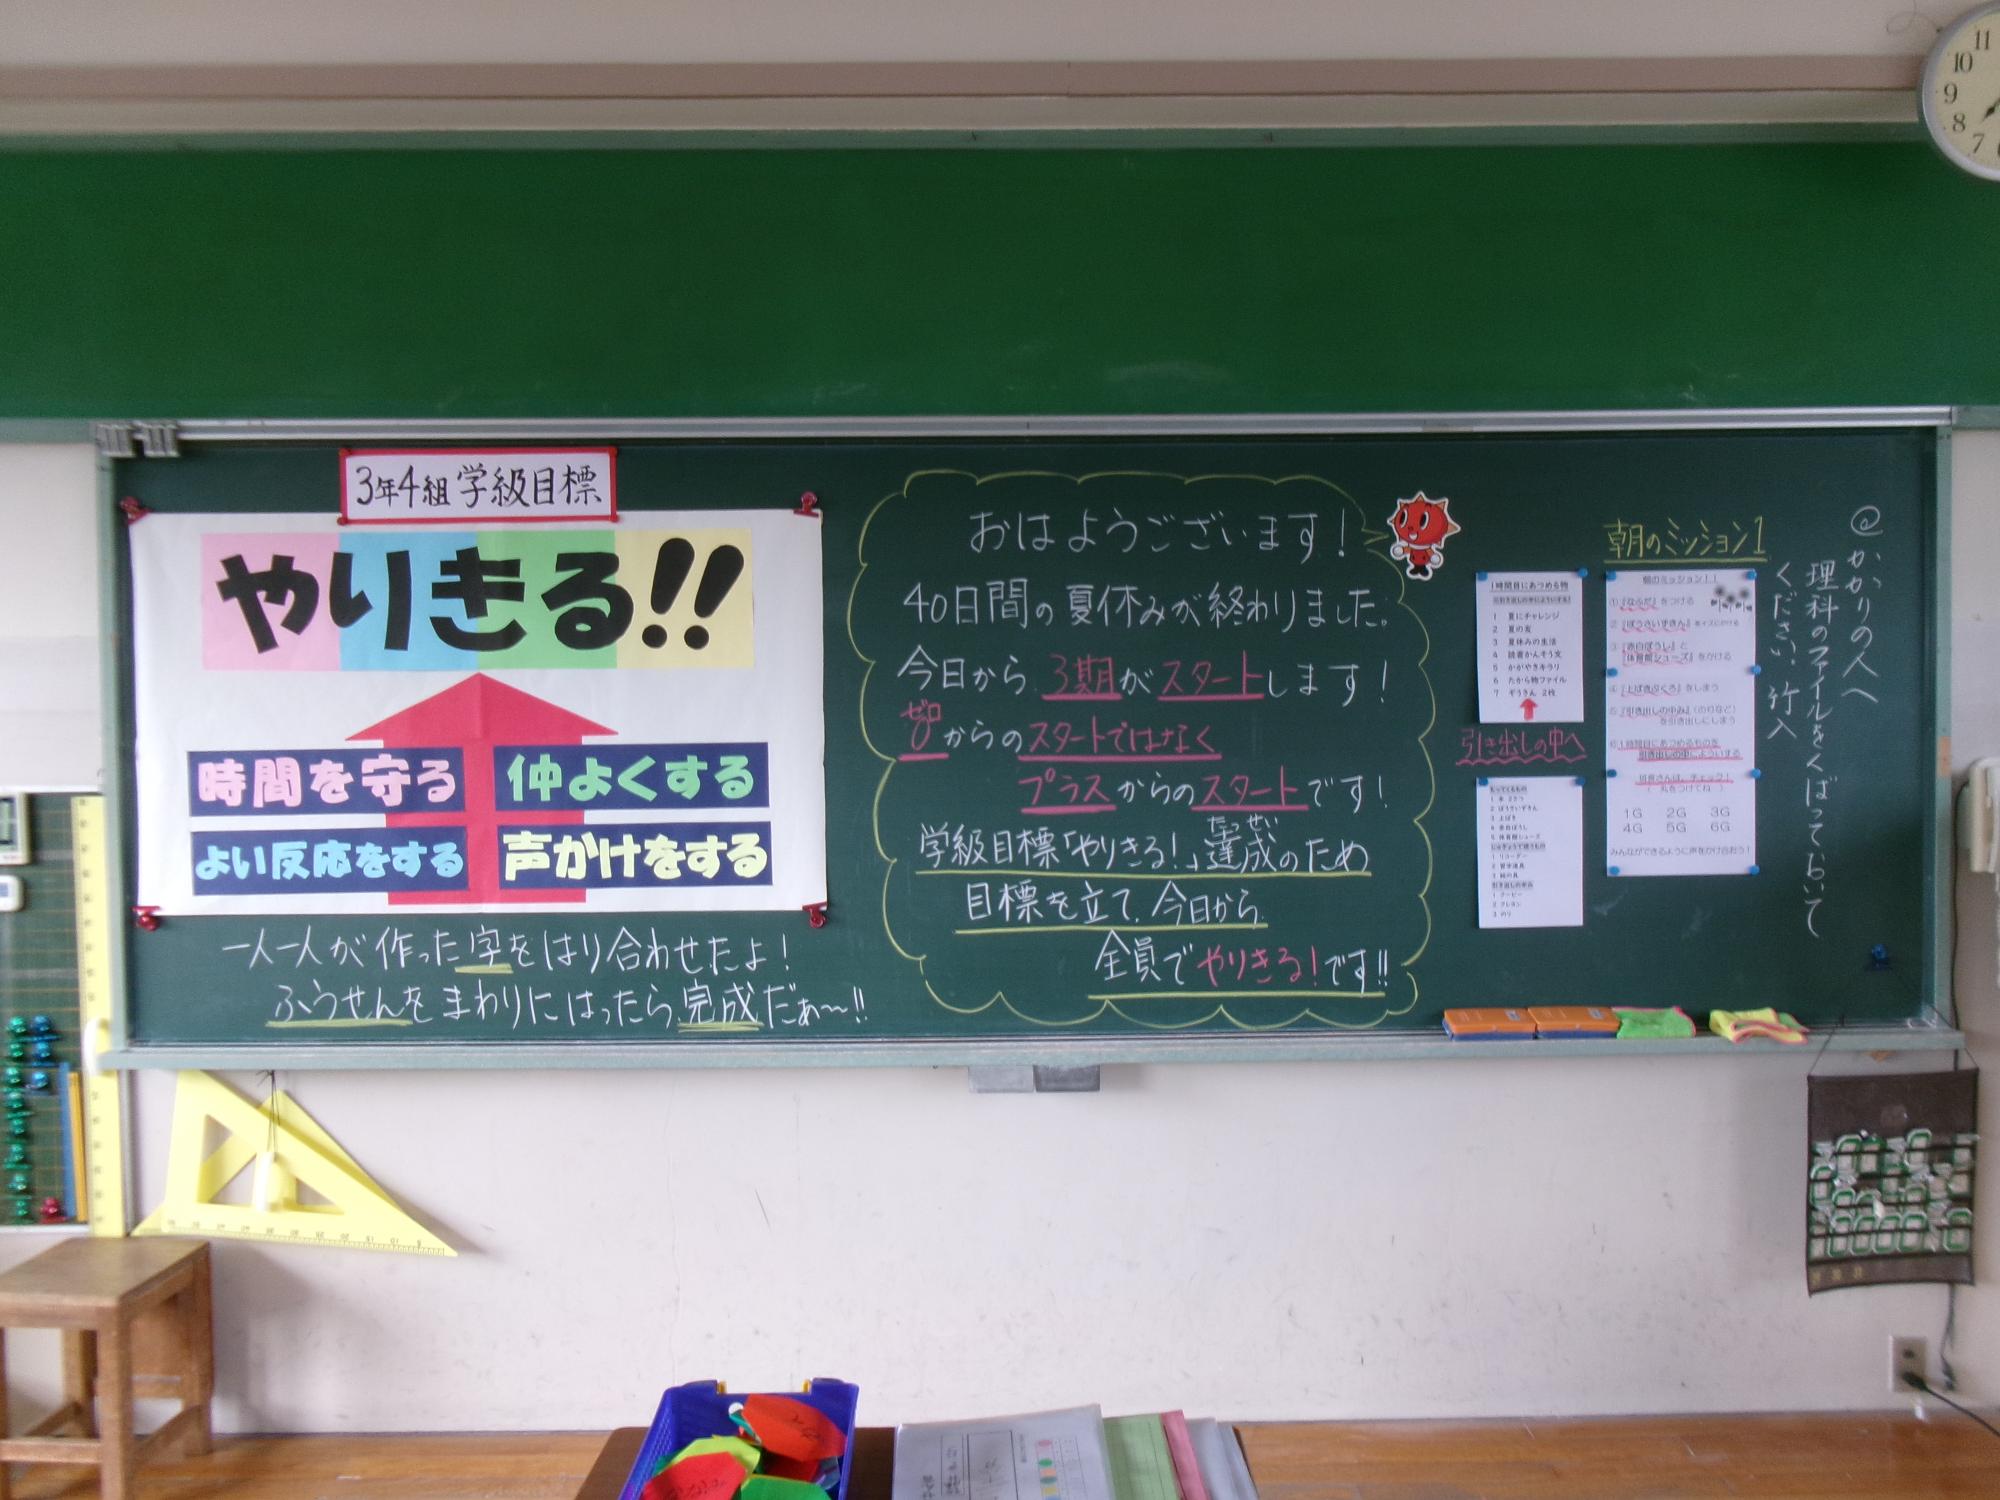 3年4組 学級目標
やりきる!!
時間を守る
仲よくする
よい反応をする
声かけをする
一人一人が作った字をはり合わせたよ！
ふうせんをまわりにはったら、完成だぁ〜!!
おはようございます！
40日間の夏休みが終わりました。
今日から、3期がスタートします！
ゼロ
0からのスタートではなく
プラスからのスタートです！
たっせい
学級目標「やりきる！」達成のため
目標を立て、今日から、
全員でやりきる！です!!
1時間目にあつめる物
1 夏にチャレンジ
2 夏の友
3 夏休みの生活
4 読書かんそう文
5 かがやきキラリ
6 たから物ファイル
7 ぞうきん 2枚
引き出しの中へ
朝のミッション1
朝のミッション！！
①『なふだ』をつける
②『ぼうさいずきん』をイスにかける
③『赤白ぼうし』と
『体育館シューズ』をかける
④『上ばきぶくろ』をしまう
⑤『引き出しの中み』(のりなど)
を引き出しにしまう
⑥1時間目にあつめるものを
引き出しの中によういする
班長さんは、チェック！
( 丸をつけてね )
1G 2G 3G
4G 5G 6G
みんなができるように声をかけ合おう！
@かかりの人へ
理科のファイルをくばっておいて
ください。竹入
11
10
9
8
7